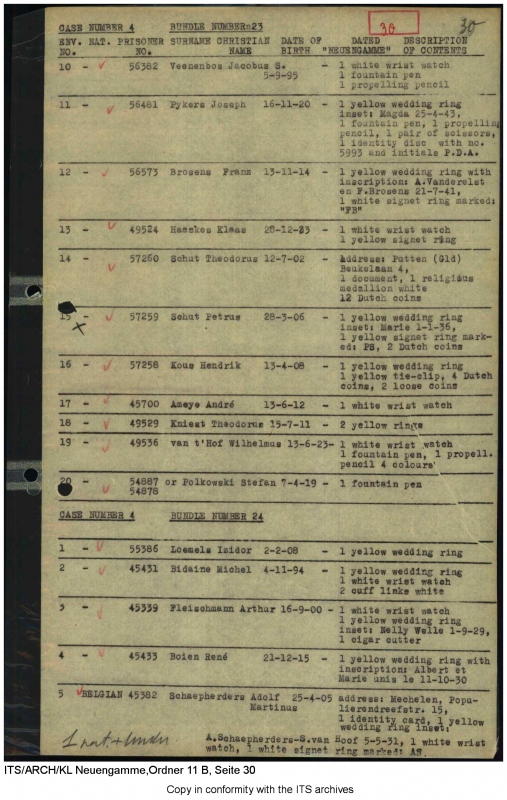 30
30
CASE NUMBER 4 BUNDLE NUMBER 23
ENV. NAT. PRISONER SURNAME CHRISTIAN DATE OF DATED DESCRIPTION
NO. NO. NAME BIRTH "NEUENGAMME" OF CONTENTS
10 - 56382 Veenenbos Jacobus S. - 1 white wrist watch
5-9-95 1 fountain pen
1 propelling pencil
11 - 56481 Pykers Joseph 16-11-20 - 1 yellow wedding ring
inset: Magda 25-4-43,
1 fountain pen, 1 propelling
pencil, 1 pair of scissors,
1 identity disc with no.
5993 and initials P.D.A.
12 - 56573 Brosens Franz 13-11-14 - 1 yellow wedding ring with
inscription: A.Vanderelst
en F.Brosens 21-7-41,
1 white signet ring marked:
"FB"
13 - 49524 Haackes Klaas 28-12-23 - 1 white wrist watch
1 yellow signet ring
14 - 57260 Schut Theodorus 12-7-02 - Address: Putten (Gld)
Beukelaan 4,
1 document, 1 religious
medallion white
12 Dutch coins
15 - 57259 Schut Petrus 28-3-06 - 1 yellow wedding ring
inset: Marie 1-1-36,
1 yellow signet ring mark-
ed: PS, 2 Dutch coins
16 - 57258 Kous Hendrik 13-4-08 - 1 yellow wedding ring
1 yellow tie-clip, 4 Dutch
coins, 2 loose coins
17 - 45700 Ameye André 13-6-12 - 1 white wrist watch
18 - 49529 Kniest Theodorus 15-7-11 - 2 yellow rings
19 - 49536 van t'Hof Wilhelmus 13-6-23- 1 white wrist watch
1 fountain pen, 1 propell.
pencil 4 colours
20 - 54887 or Polkowski Stefan 7-4-19 - 1 fountain pen
54878
CASE NUMBER 4 BUNDLE NUMBER 24
1 - 55386 Loemels Izidor 2-2-08 - 1 yellow wedding ring
2 - 45431 Bidaine Michel 4-11-94 - 1 yellow wedding ring
1 white wrist watch
2 cuff links white
3 - 45339 Fleischmann Arthur 16-9-00 - 1 white wrist watch
1 yellow wedding ring
inset: Nelly Welle 1-9-29,
1 cigar cutter
4 - 45433 Boien René 21-12-15 - 1 yellow wedding ring with
inscription: Albert et
Marie unis le 11-10-30
5 BELGIAN 45382 Schaepherders Adolf 25-4-05 address: Mechelen, Popu-
Martinus lierendreefstr. 15,
1 identity card, 1 yellow
wedding ring inset:
A.Schaepherders-S.van Hoof 5-5-31, 1 white wrist
watch, 1 white signet ring marked: AS.
ITS/ARCH/KL Neuengamme,Ordner 11 B, Seite 30
Copy in conformity with the ITS archives